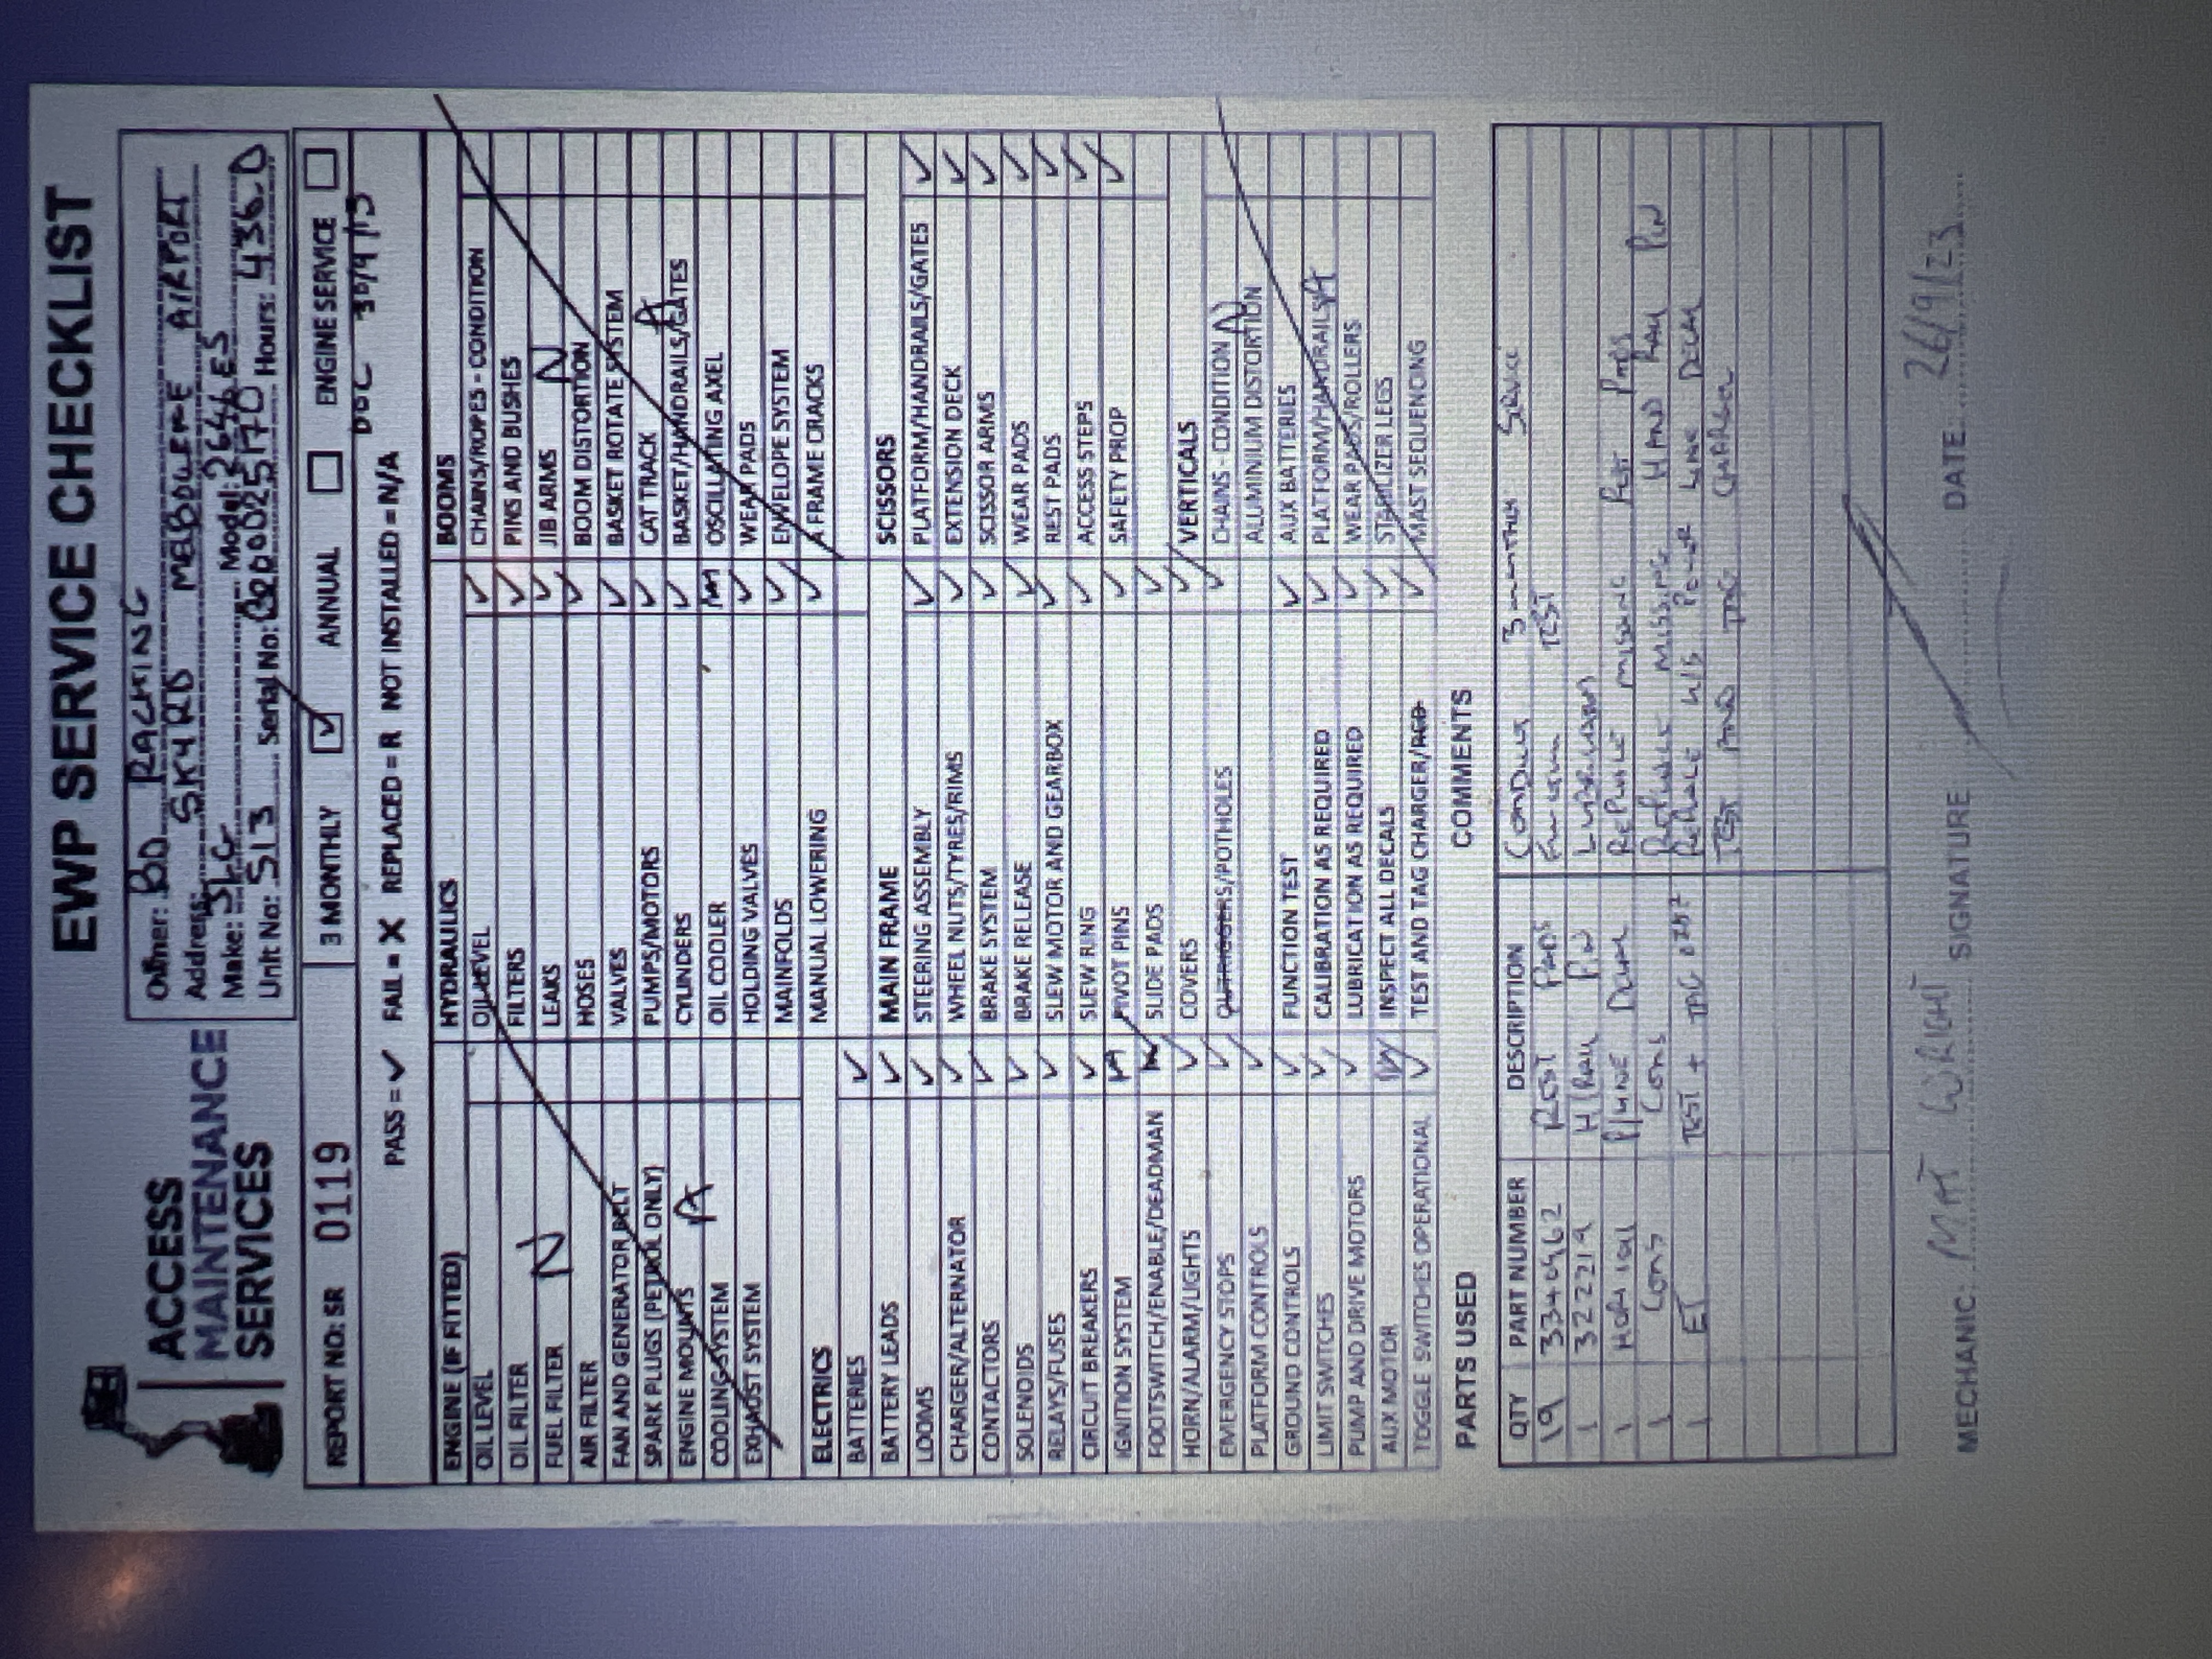 EWP SERVICE CHECKLIST
ACCESS
MAINTENANCE
SERVICES
Owner: BD RACKING
Address: SKY RD MELBOURNE AIRPORT
Make: JLG Model: 2646ES
Unit No: S13 Serial No: B200025170 Hours: 436.0
REPORT NO: SR 0119 3 MONTHLY ✓ ANNUAL ENGINE SERVICE
PASS = ✓ FAIL = X REPLACED = R NOT INSTALLED = N/A DOC 30/9/13
ENGINE (IF FITTED)
OIL LEVEL
OIL FILTER
FUEL FILTER N
AIR FILTER
FAN AND GENERATOR BELT
SPARK PLUGS (PETROL ONLY)
ENGINE MOUNTS A
COOLING SYSTEM
EXHAUST SYSTEM
ELECTRICS
BATTERIES ✓
BATTERY LEADS ✓
LOOMS ✓
CHARGER/ALTERNATOR ✓
CONTACTORS ✓
SOLENOIDS ✓
RELAYS/FUSES ✓
CIRCUIT BREAKERS ✓
IGNITION SYSTEM
FOOTSWITCH/ENABLE/DEADMAN
HORN/ALARM/LIGHTS ✓
EMERGENCY STOPS ✓
PLATFORM CONTROLS ✓
GROUND CONTROLS ✓
LIMIT SWITCHES ✓
PUMP AND DRIVE MOTORS ✓
AUX MOTOR
TOGGLE SWITCHES OPERATIONAL ✓
HYDRAULICS
OIL LEVEL ✓
FILTERS ✓
LEAKS ✓
HOSES ✓
VALVES ✓
PUMPS/MOTORS ✓
CYLINDERS ✓
OIL COOLER
HOLDING VALVES ✓
MAINFOLDS ✓
MANUAL LOWERING ✓
MAIN FRAME
STEERING ASSEMBLY ✓
WHEEL NUTS/TYRES/RIMS ✓
BRAKE SYSTEM ✓
BRAKE RELEASE ✓
SLEW MOTOR AND GEARBOX ✓
SLEW RING ✓
PIVOT PINS ✓
SLIDE PADS ✓
COVERS ✓
OUTRIGGERS/POTHOLES ✓
FUNCTION TEST ✓
CALIBRATION AS REQUIRED ✓
LUBRICATION AS REQUIRED ✓
INSPECT ALL DECALS ✓
TEST AND TAG CHARGER/RCD ✓
BOOMS
CHAINS/ROPES - CONDITION
PINS AND BUSHES
JIB ARMS N
BOOM DISTORTION
BASKET ROTATE SYSTEM
CAT TRACK A
BASKET/HANDRAILS/GATES
OSCILLATING AXEL
WEAR PADS
ENVELOPE SYSTEM
A FRAME CRACKS
SCISSORS
PLATFORM/HANDRAILS/GATES ✓
EXTENSION DECK ✓
SCISSOR ARMS ✓
WEAR PADS ✓
REST PADS ✓
ACCESS STEPS ✓
SAFETY PROP ✓
VERTICALS
CHAINS - CONDITION N
ALUMINIUM DISTORTION
AUX BATTERIES
PLATFORM/HANDRAILS A
WEAR PADS/ROLLERS
STABILIZER LEGS
MAST SEQUENCING
PARTS USED
QTY PART NUMBER DESCRIPTION
19 3346962 REST PADS
1 3222219 H/RAIL PIN
1 P/LINE DECAL
1 CONS CONS
1 ET TEST + TAG
COMMENTS
CONDUCT 3 MONTHLY SERVICE
FUNCTION TEST
LUBRICATION
REPLACE MISSING REST PADS
REPLACE MISSING HAND RAIL PIN
REPLACE W/S POWER LINE DECAL
TEST AND TAG CHARGER
MECHANIC: MAT WRIGHT SIGNATURE DATE: 26/9/23